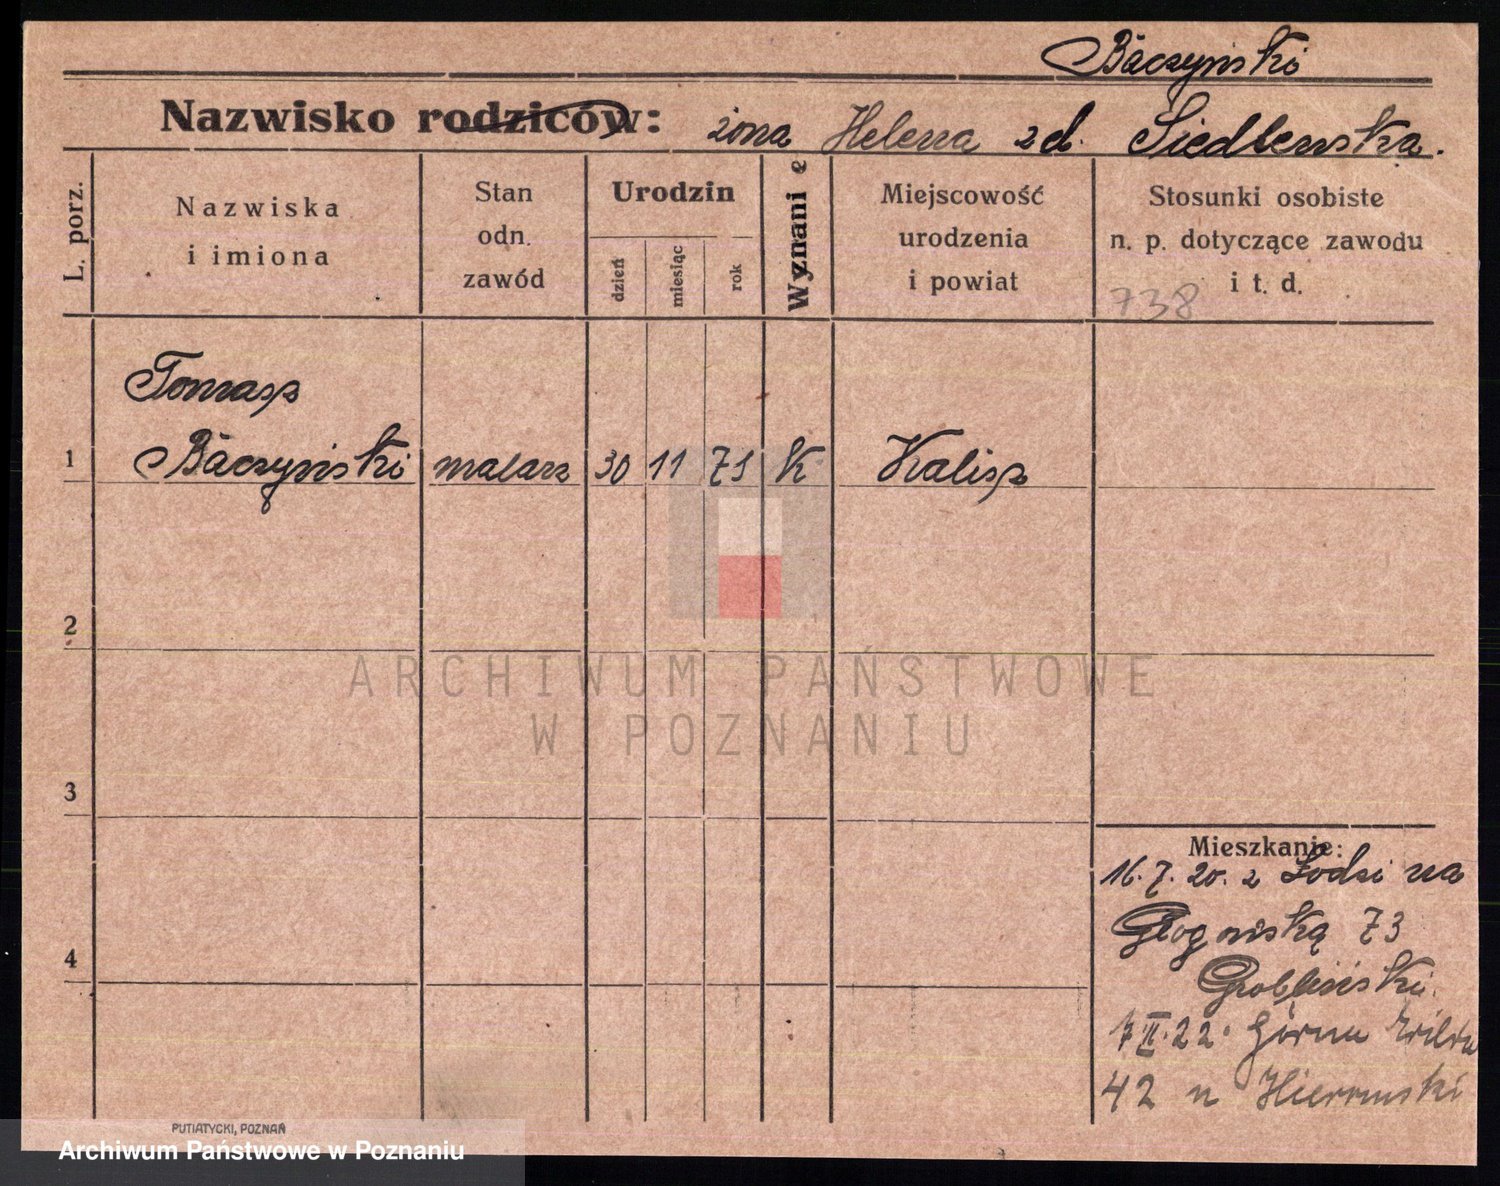 Bączyński
Nazwisko rodziców: żona Helena zd. Siedlewska.
L. porz.
Nazwiska
i imiona
Stan
odn.
zawód
Urodzin
dzień
miesiąc
rok
Wyznani e
Miejscowość
urodzenia
i powiat
Stosunki osobiste
n. p. dotyczące zawodu
i t. d.
738
Tomasz
1 Bączyński malarz 30 11 71 K Kalisz
2
3
4
ARCHIWUM PAŃSTWOWE
W POZNANIU
Mieszkanie:
16.7.20. z Łodzi na
Głogowską 73
7 II.22. Górna Wilda
42 u
PUTIATYCKI, POZNAŃ
Archiwum Państwowe w Poznaniu